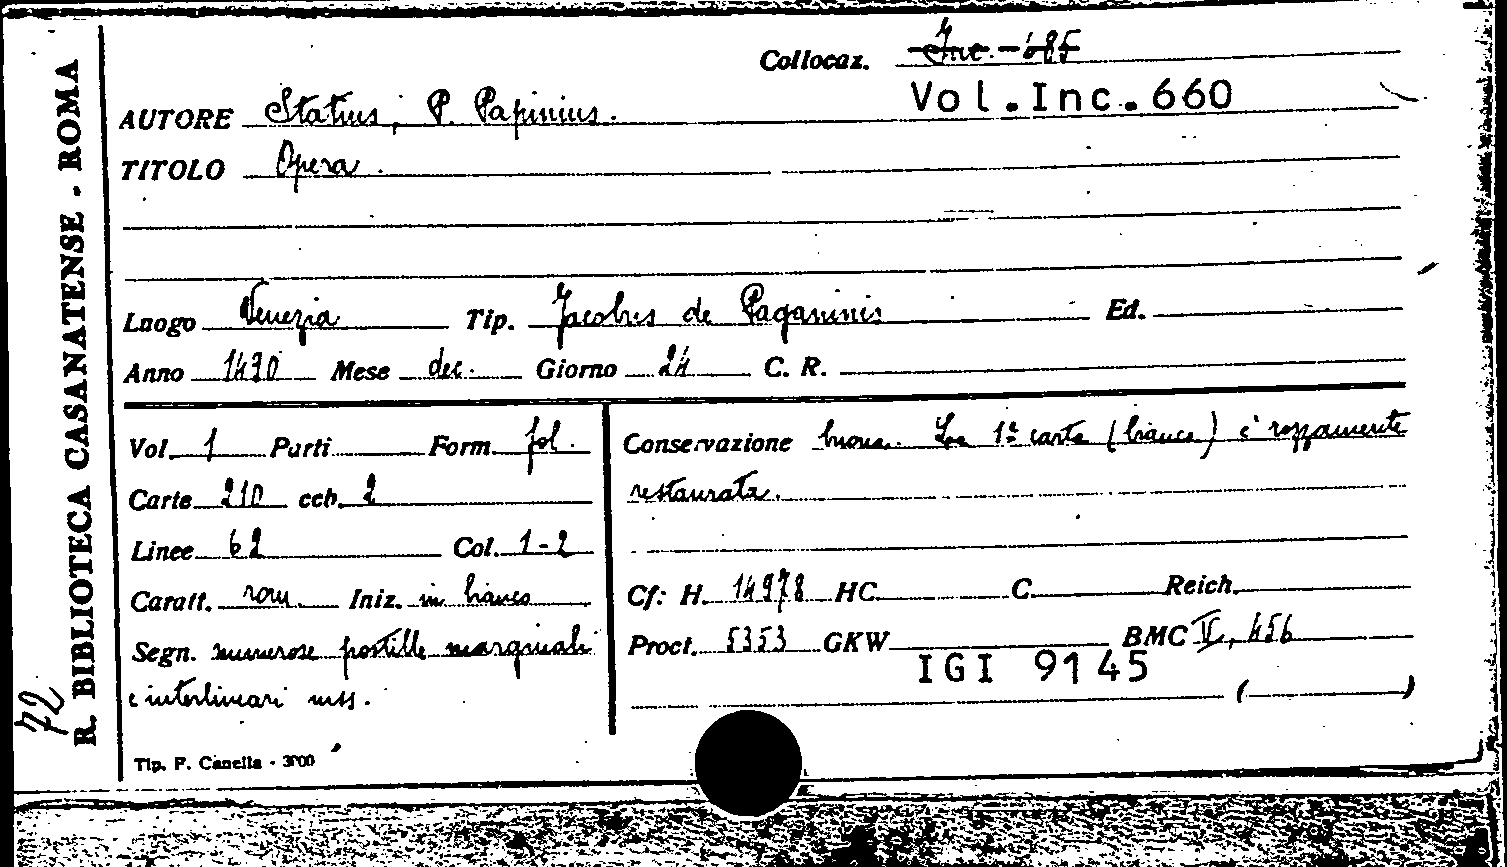 R. BIBLIOTECA CASANATENSE - ROMA
72
Collocaz. Inc. - 685
Vol.Inc.660
AUTORE Statius, P. Papinius.
TITOLO Opera.
Luogo Venezia Tip. Jacobus de Paganinis Ed.
Anno 1490 Mese dec. Giorno 24 C. R.
Vol. 1 Parti Form. fol.
Carte 210 ccb. 2
Linee 62 Col. 1-2
Caratt. rom. Iniz. in bianco
Segn. numerose postille marginali
e interlineari mss.
Conservazione buona. La 1ª carta (bianca) è rozzamente
restaurata.
Cf: H. 14978 HC C. Reich.
Proct. 5353 GKW BMC V, 456
IGI 9145
( )
Tip. F. Canella - 3000